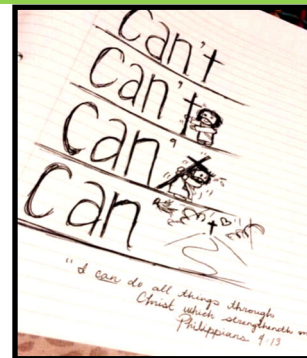 Can't
Can't
Can'
Can
"I can do all things through
Christ which strengtheneth m
Philippians 4:13